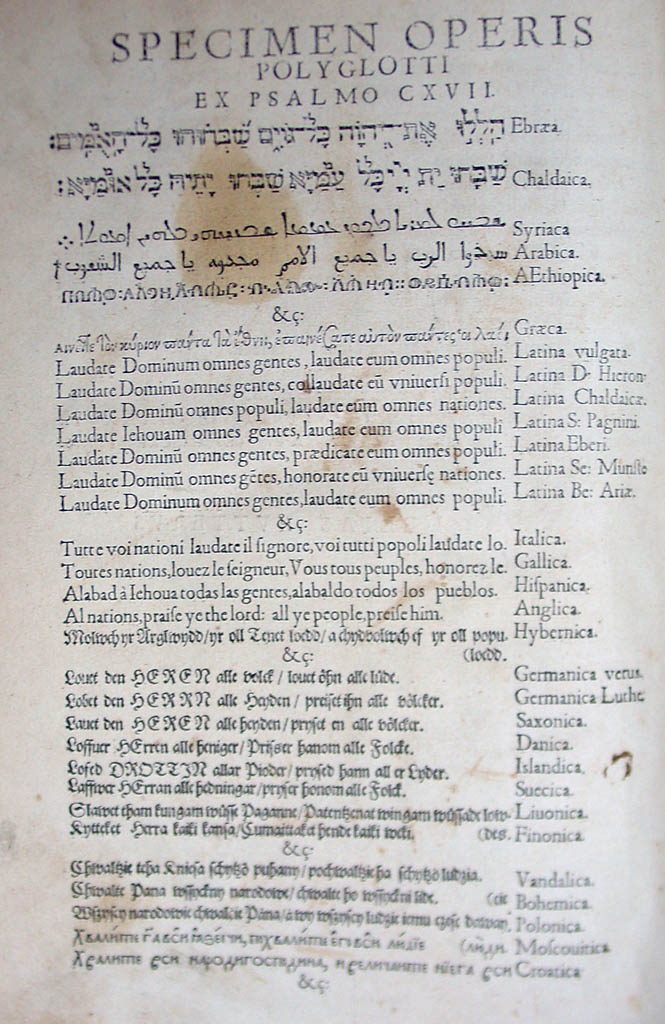 SPECIMEN OPERIS
POLYGLOTTI
EX PSALMO CXVII.
הַלְלוּ אֶת־יְהֹוָה כָּל־גּוֹיִם שַׁבְּחוּהוּ כָּל־הָאֻמִּים׃ Ebræa.
שַׁבְּחוּ יַת יְיָ כָּל עַמְּיָא שַׁבְּחוּ יָתֵיהּ כָּל אוּמַּיָּא׃ Chaldaica.
Syriaca
سبحوا الرب يا جميع الامم مجدوه يا جميع الشعوب Arabica.
AEthiopica.
&ς:
Αἰνεῖτε τὸν κύριον πάντα τὰ ἔθνη, ἐπαινέσατε αὐτὸν πάντες οἱ λαοί, Græca.
Laudate Dominum omnes gentes, laudate eum omnes populi. Latina vulgata.
Laudate Dominū omnes gentes, collaudate eū vniuersi populi. Latina D. Hieron:
Laudate Dominū omnes populi, laudate eum omnes nationes. Latina Chaldaicæ.
Laudate Iehouam omnes gentes, laudate eum omnes populi Latina S: Pagnini.
Laudate Dominū omnes gentes, prædicate eum omnes populi. Latina Eberi.
Laudate Dominū omnes gētes, honorate eū vniuersę nationes. Latina Se: Munste
Laudate Dominum omnes gentes, laudate eum omnes populi. Latina Be: Ariæ.
&ς:
Tutte voi nationi laudate il signore, voi tutti popoli laudate lo. Italica.
Toutes nations, louez le seigneur, Vous tous peuples, honorez le. Gallica.
Alabad à Iehoua todas las gentes, alabaldo todos los pueblos. Hispanica.
Al nations, praise ye the lord: all ye people, preise him. Anglica.
Molwch yr Arglwydd/ yr oll Tenet loedd/ a chydvolwch ef yr oll popu. Hybernica.
&ς: (loedd.
Louet den HEREN alle volck/ louet öhn alle lüde. Germanica verus.
Lobet den HERRN alle Heyden/ preiset ihn alle völcker. Germanica Luthe
Lauet den HEREN alle heyden/ pryset en alle völcker. Saxonica.
Loffuer HErren alle heniger/ Prisser hanom alle Folcke. Danica.
Lofed DROTTIN allar Pioder/ prysed hann all er Lyder. Islandica.
Laffwer HErran alle hedningar/ pryser honom alle Folck. Suecica.
Slawet tham kungam wüsse Paganne/ Patentzenat wingam wüssade low- Liuonica.
Kytteket Herra kaiki kansa/ Cumaittaket hende kaiki wcki. (des. Finonica
&ς:
Chwaltzie tcha Kniesa schytzö puhany/ pochwaltzie ha schytzö ludzia. Vandalica.
Chwalte Pana wssyckny narodowe/ chwalte ho wssyckni lide. (cie Bohemica.
Wszyscy narodowie chwalcie Pána/ a wy wszyscy ludzie iemu czesc dawáy Polonica.
(люди. Moscouitica
Croatica
&ς: